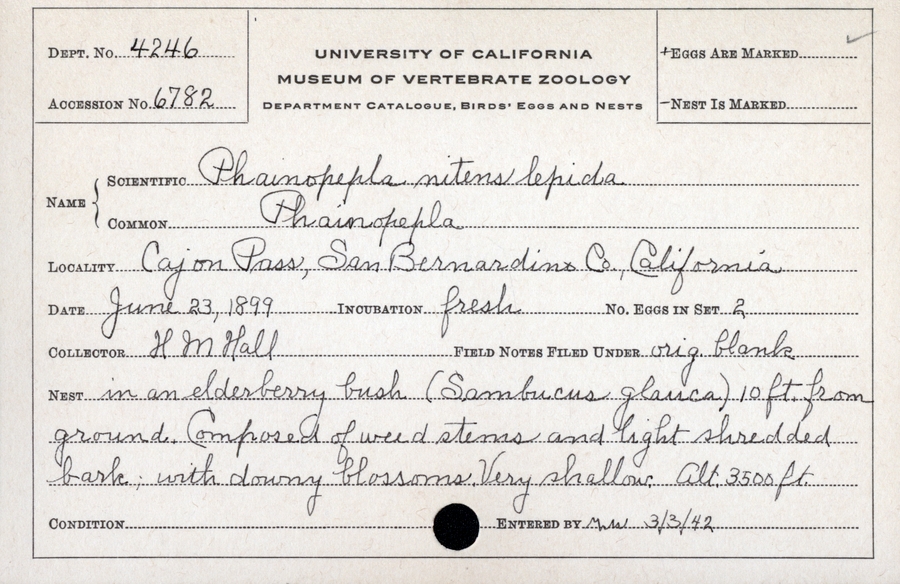 DEPT. No. 4246
ACCESSION No. 6782
UNIVERSITY OF CALIFORNIA
MUSEUM OF VERTEBRATE ZOOLOGY
DEPARTMENT CATALOGUE, BIRDS' EGGS AND NESTS
+EGGS ARE MARKED
-NEST IS MARKED
NAME
SCIENTIFIC Phainopepla nitens lepida
COMMON Phainopepla
LOCALITY Cajon Pass, San Bernardino Co., California
DATE June 23, 1899 INCUBATION fresh No. EGGS IN SET 2
COLLECTOR H M Hall FIELD NOTES FILED UNDER orig. blank
NEST in an elderberry bush (Sambucus glauca) 10 ft. from
ground. Composed of weed stems and light shredded
bark; with downy blossoms. Very shallow. Alt. 3500 ft.
CONDITION ENTERED BY 3/3/42